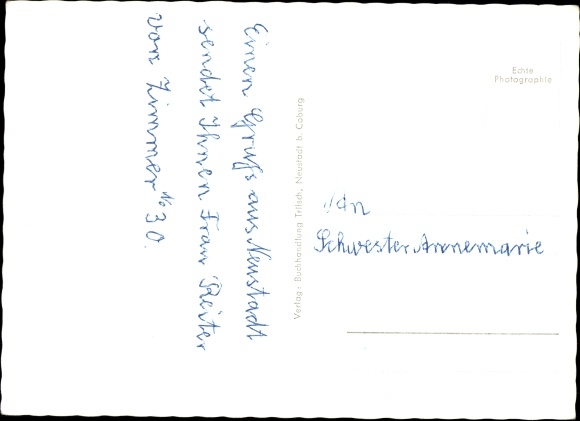 Einen Gruß aus Neustadt
sendet Ihnen Frau Reiter
von Zimmer No 30.
Verlag: Buchhandlung Tritsch, Neustadt b. Coburg
Echte
Photographie
An
Schwester Annemarie